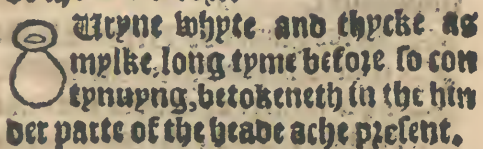 Uryne whyte and thycke as
mylke, long tyme before so con
tynuyng, betokeneth in the hin
der parte of the heade ache present.